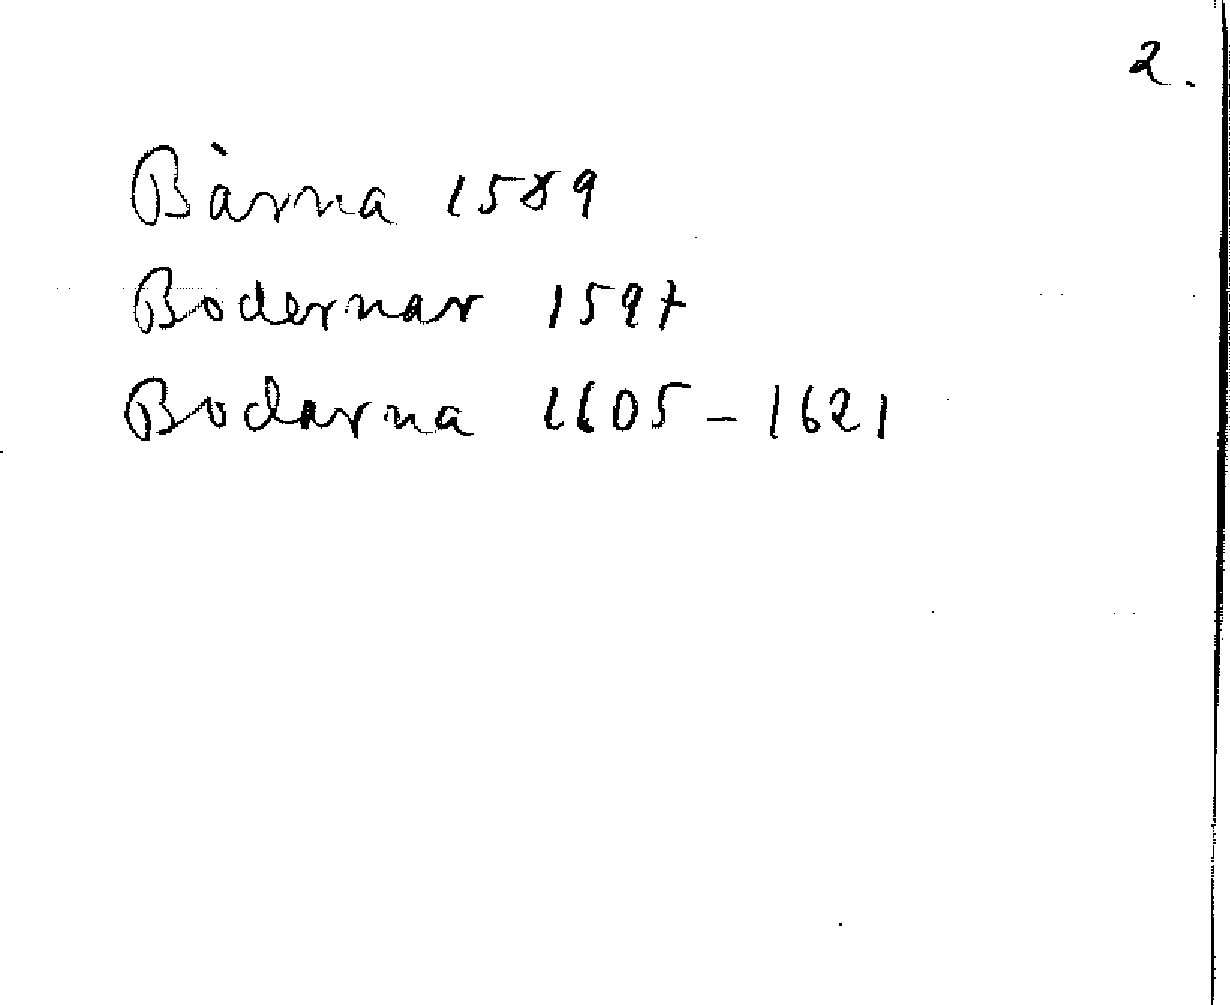 2.
Bàrna 1589
Bodernar 1597
Bodarna 1605 - 1621